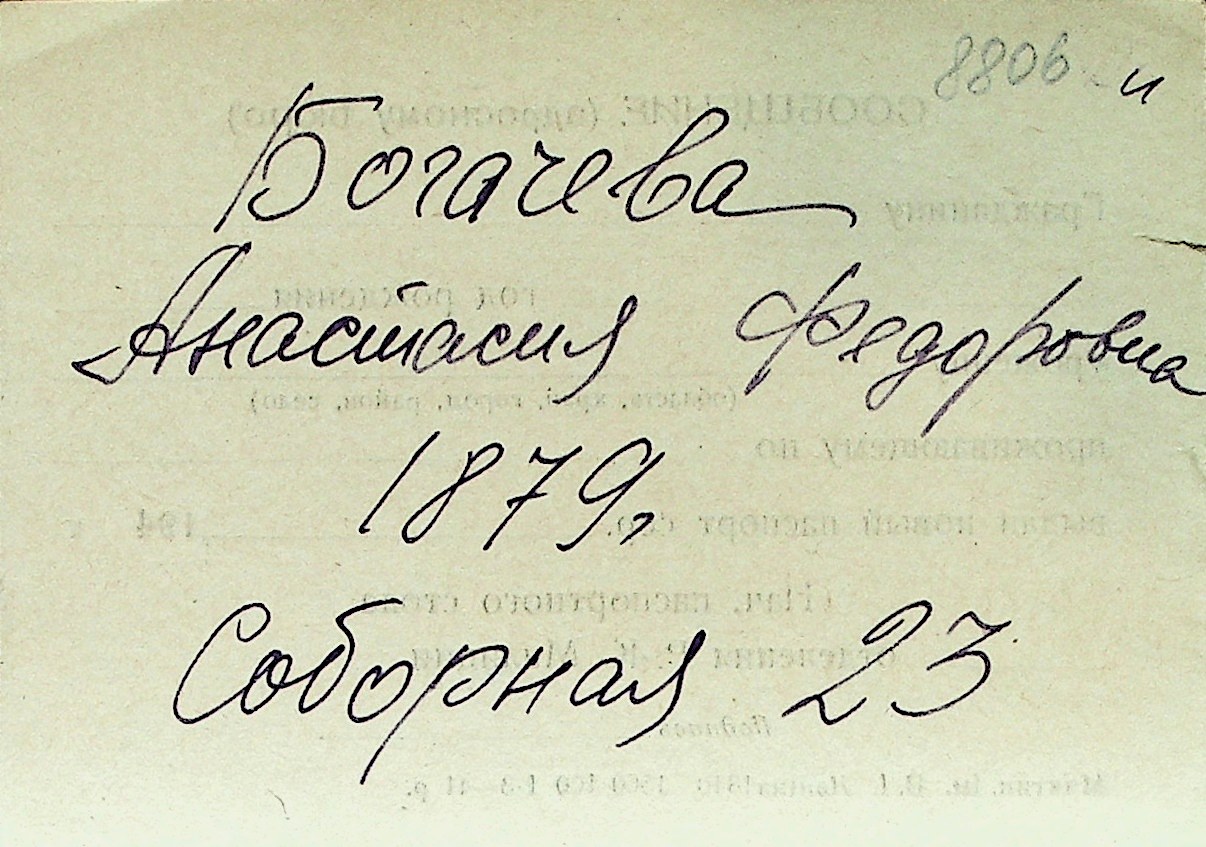 8806 и
Богачева
Анастасия Федоровна
1879г
Соборная 23